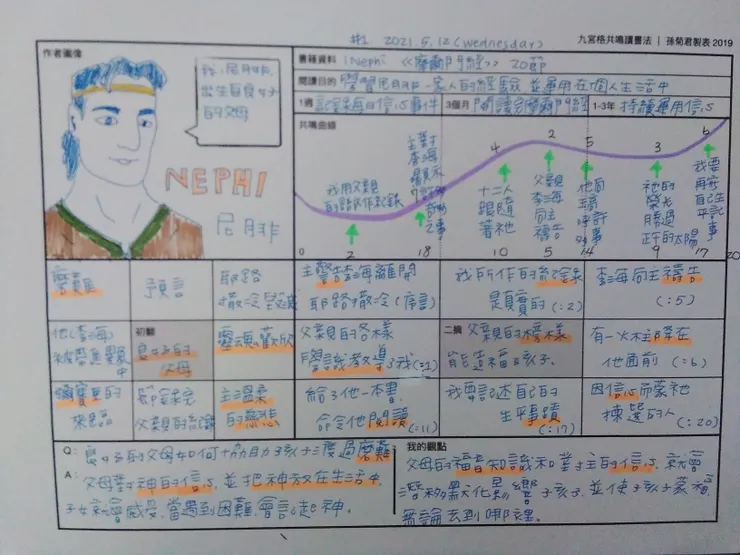 #1 2021.5.12 (wednesday)
九宮格共鳴讀書法 | 孫菊君製表 2019
作者圖像
書籍資料 1 Nephi 《摩爾門經》 20節
閱讀目的 學習尼腓一家人的經驗,並運用在個人生活中
1週
信心事件
3個月 閱讀完摩爾門經
1-3年 持續運用信心
我,尼腓,
出生自良好
的父母
NEPHI
尼腓
共鳴曲線
我用父親
的語文作紀錄
2
主對
李海
顯示
18
4
十二人
跟隨
著祂
10
2
父親
李海
向主
禱告
5
5
他看
14
3
祂的
榮光
勝過
正午的太陽
9
6
我要
再寫
自己生
平記
事
17
0
20
磨難
預言
耶路
撒冷毀滅
主警告李海離開
耶路撒冷(序言)
我所作的紀錄
是真實的(:2)
李海向主禱告
(:5)
他(李海)
初翻
良好的
父母
靈魂歡欣
父親的各樣
學識教導了我(:1)
二摘
父親的榜樣
能造福孩子.
有一火柱降在
他面前 (:6)
彌賽亞的
來臨
節錄
父親的紀錄
主溫柔
的慈悲
給了他一本書,
命令他閱讀
(:11)
我要記述自己的
生平事蹟
(:17)
因信心而蒙祂
揀選的人
(:20)
Q: 良好的父母如何幫助孩子度過磨難?
A: 父母對神的信心,並把神放在生活中,
子女就會感受,當遇到困難,會記起神.
我的觀點
父母的福音知識和對主的信心,就會
潛移默化影響孩子,並使孩子蒙福
無論去到哪裡.